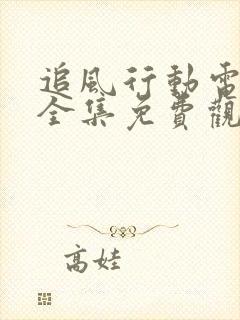 追風行動電
全集免費觀
高娃